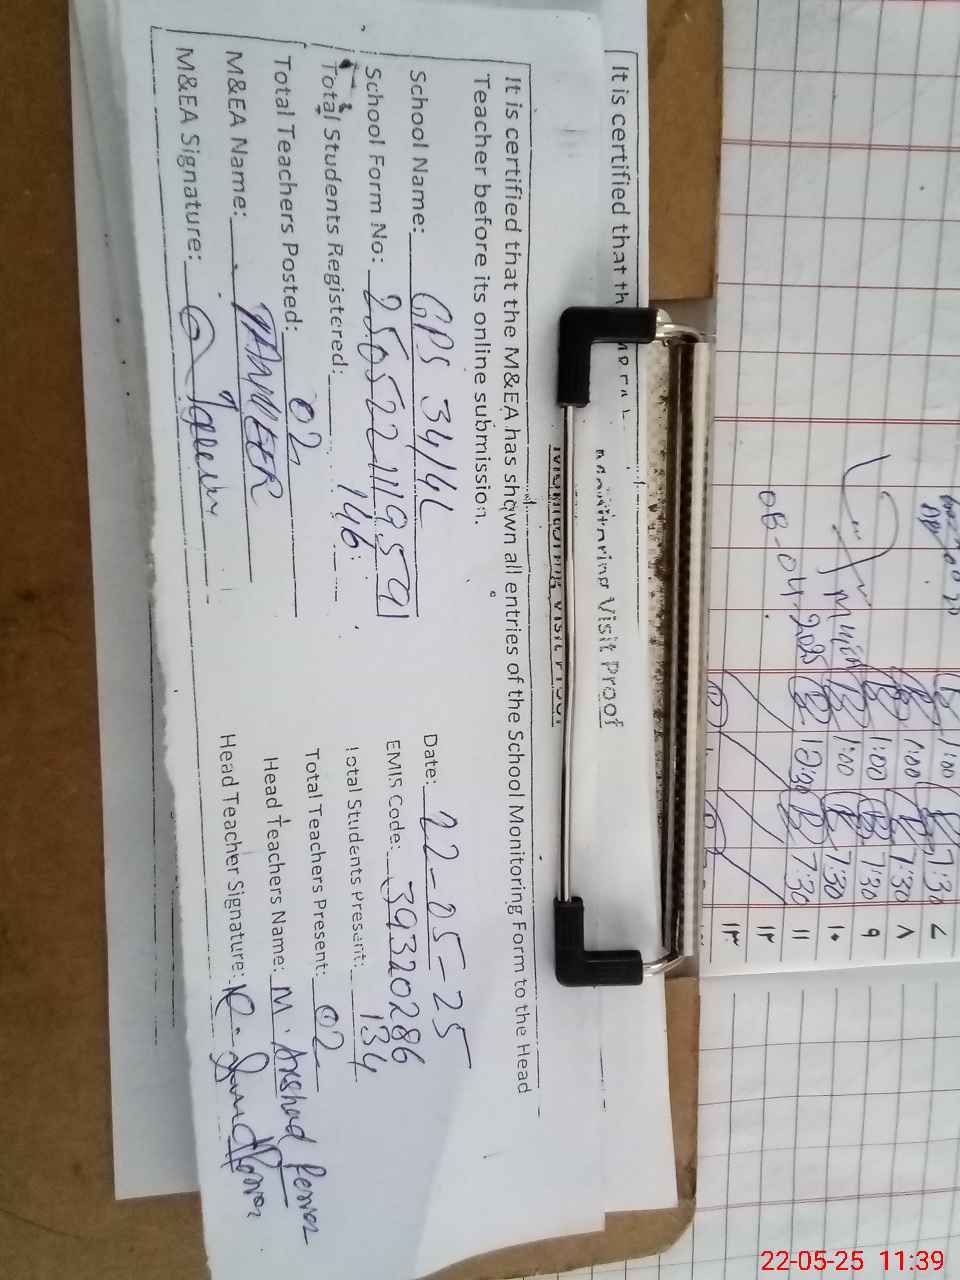 It is certified that th
Monitoring Visit Proof
Monitoring Visit Proof
It is certified that the M&EA has shown all entries of the School Monitoring Form to the Head
Teacher before its online submission.
School Name: GPS 34/4L
Date: 22-05-25
School Form No: 25052211959
EMIS Code: 39320286
Total Students Registered: 146
Total Students Present: 134
Total Teachers Posted: 02
Total Teachers Present: 02
M&EA Name: TANVEER
Head Teachers Name: M. Arshad
M&EA Signature:
Head Teacher Signature:
1:00 7:30 ۷
1:00 7:30 ۸
1:00 7:30 ۹
1:00 7:30 ۱۰
08-04-2025 12:30 7:30 ۱۱
۱۲
۱۳
22-05-25 11:39